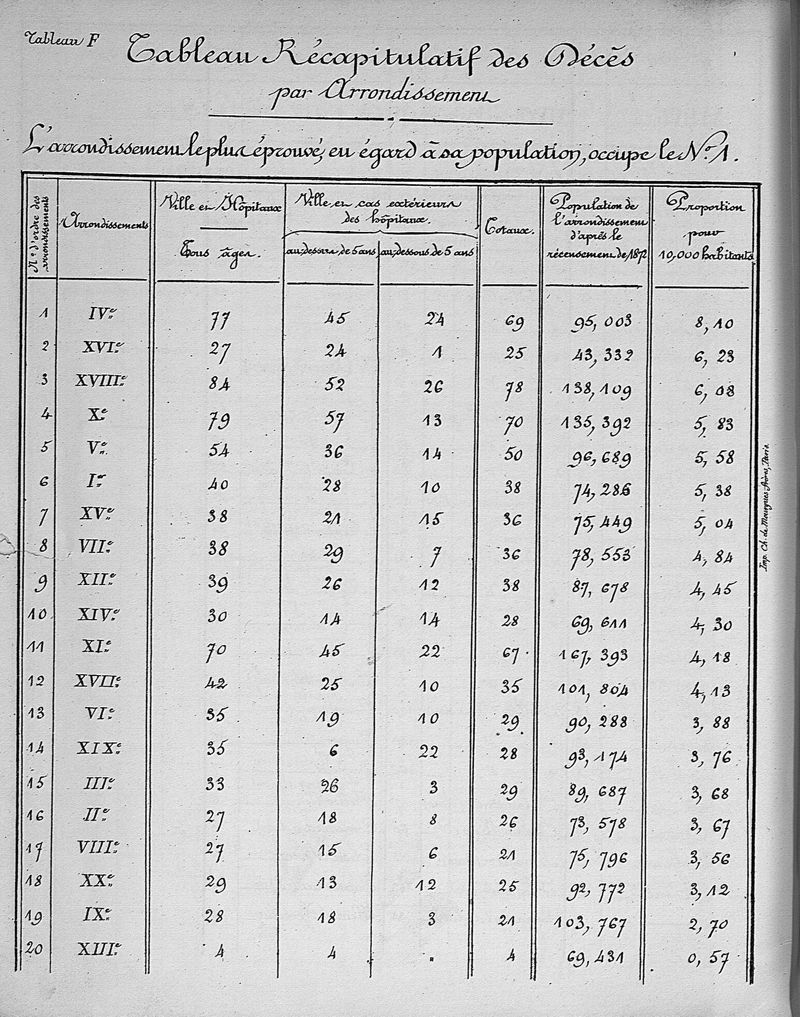 Tableau F
Tableau Récapitulatif des Décès
par Arrondissement
L'arrondissement le plus éprouvé, eu égard à sa population, occupe le N° 1.
Nos d'ordre des arrondissements | Arrondissements | Ville et Hôpitaux Tous âges. | Ville et cas extérieurs des hôpitaux. au dessus de 5 ans | au dessous de 5 ans | Totaux. | Population de l'arrondissement d'après le récensement de 1872 | Proportion pour 10,000 habitants
1 IVe 77 45 24 69 95,003 8,10
2 XVIe 27 24 1 25 43,332 6,23
3 XVIIIe 84 52 26 78 138,109 6,08
4 Xe 79 57 13 70 135,392 5,83
5 Ve 54 36 14 50 96,689 5,58
6 Ie 40 28 10 38 74,286 5,38
7 XVe 38 21 15 36 75,449 5,04
8 VIIe 38 29 7 36 78,553 4,84
9 XIIe 39 26 12 38 87,678 4,45
10 XIVe 30 14 14 28 69,611 4,30
11 XIe 70 45 22 67 167,393 4,18
12 XVIIe 42 25 10 35 101,804 4,13
13 VIe 35 19 10 29 90,288 3,88
14 XIXe 35 6 22 28 93,174 3,76
15 IIIe 33 26 3 29 89,687 3,68
16 IIe 27 18 8 26 73,578 3,67
17 VIIIe 27 15 6 21 75,796 3,56
18 XXe 29 13 12 25 92,772 3,12
19 IXe 28 18 3 21 103,767 2,70
20 XIIIe 4 4 . 4 69,431 0,57
Imp. Ch. de Mourgues frères, Paris.